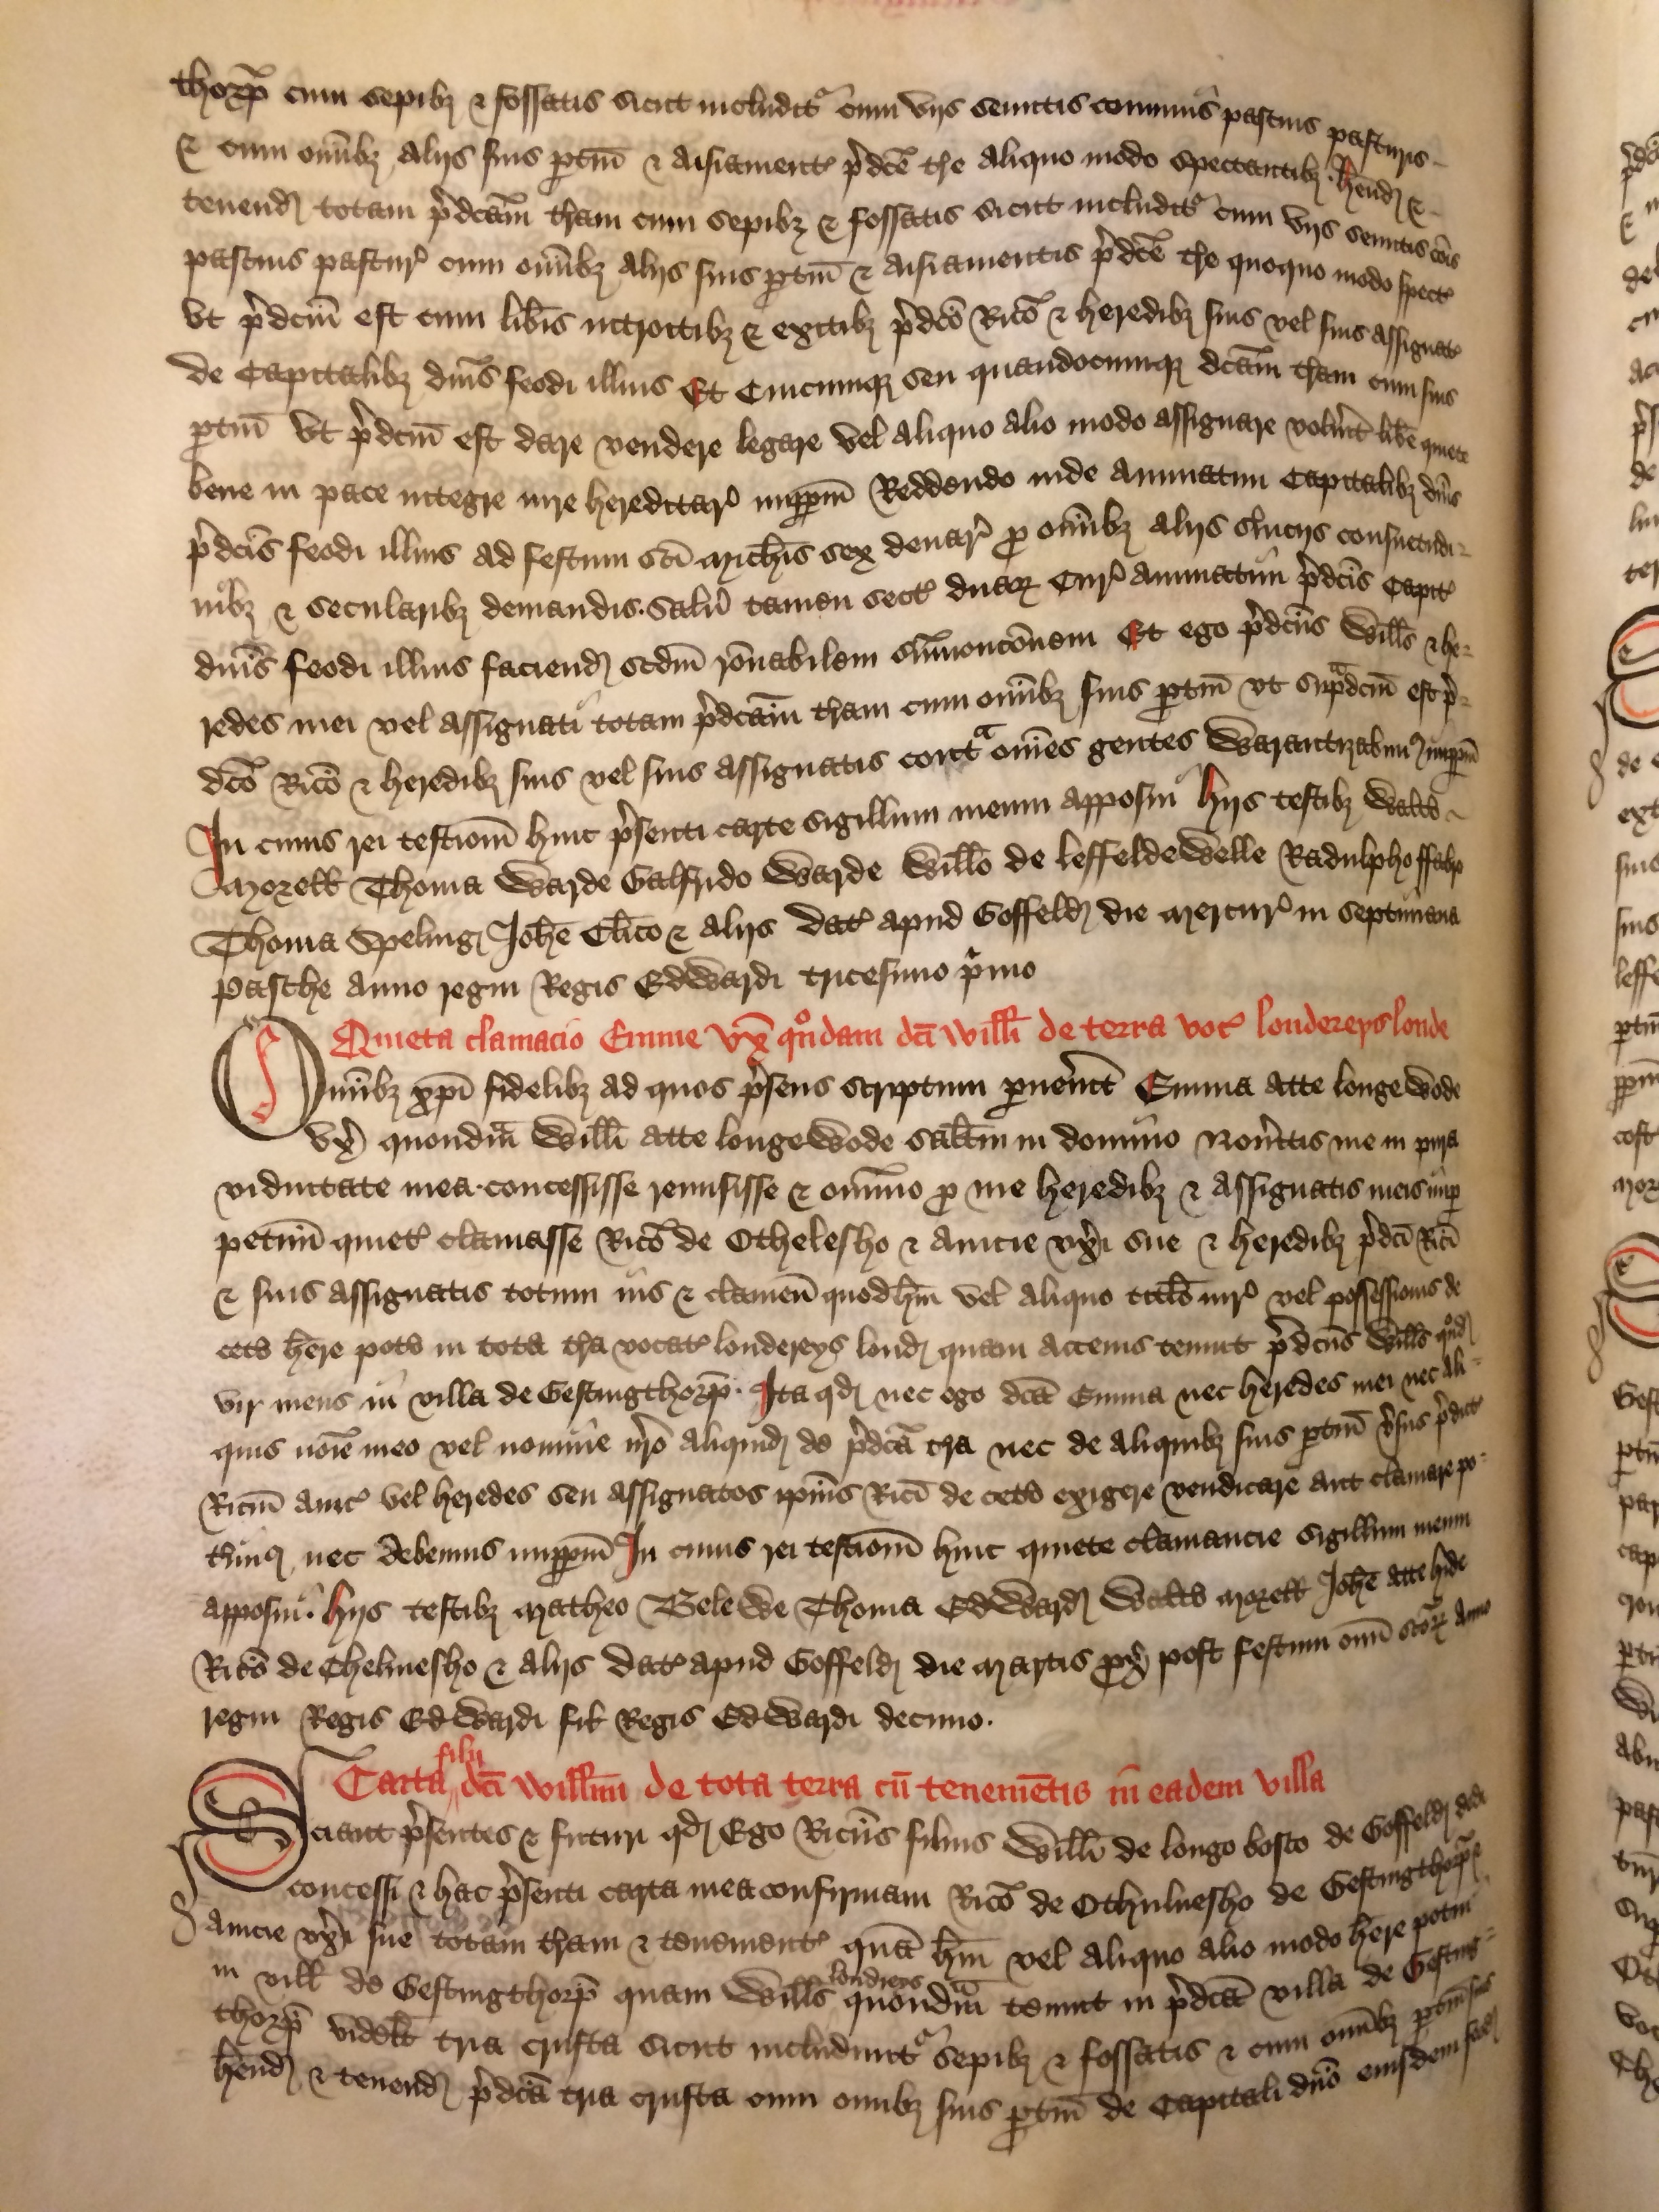 thorp̄ cum sepibꝫ & fossatis sicut includit᷑ cum vijs semitis commūs pastuis pasturis
& cum om̄ibꝫ alijs suis ꝑtin̄ & aisiament᷑ p̄dc̄e t̄re aliquo modo spectantibꝫ. h̄end̨ &
tenend̨ totam p̄dc̄am t̄ram cum sepibꝫ & fossatis sicut includit᷑ cum vijs semitis cōis
pastuis pastur᷑ cum om̄ibꝫ alijs suis ꝑtin̄ & aisiamentis p̄dc̄e t̄re quoquo modo spect᷑
vt p̄dcm̄ est cum lib̄is introitibꝫ & exitibꝫ p̄dc̄o Ric̄o & heredibꝫ suis vel suis assignat᷑
de Capitalibꝫ dn̄is feodi illius Et Cuicumqꝫ seu quandocumqꝫ dc̄am t̄ram cum suis
ꝑtin̄ vt p̄dcm̄ est dare vendere legare vel aliquo alio modo assignare volūit lib̄e quiete
bene in pace integre iure hereditar᷑ imꝑpm̄ Reddendo inde Annuatim Capitalibꝫ dn̄is
p̄dc̄is feodi illius ad festum sc̄i Mich̄is sex denar᷑ ꝓ om̄ibꝫ alijs s̄uicijs consuetudi-
nibꝫ & secularibꝫ demandis. Salū tamen sect᷑ duaꝝ Cur᷑ annuatim p̄dc̄is Capit᷑
dn̄is feodi illius faciend̨ scdm̄ rōnabilem sūmonicōnem Et ego p̄dc̄us Will̄s & he-
redes mei vel assignati totam p̄dc̄am t̄ram cum om̄ibꝫ suis ꝑtin̄ vt sup̃dcm̄ est p̄-
dc̄o Ric̄o & heredibꝫ suis vel suis assignatis contᵃ om̄es gentes Warantizabimꝰ imꝑpm̄
In cuius rei testiom̄ huic p̄senti carte sigillum meum apposui hijs testibꝫ Walt̄o
Morell̄ Thoma Warde Galfrido Warde Will̄o de leffeldeWelle Radulpho ffab̄o
Thoma Speling̨ Joh̄e Cl̄ico & alijs dat᷑ apud Goffeld̨ die Mercur᷑ in septimana
Pasche Anno regni Regis EdWardi tricesimo p̄mo
Quieta clamacio Emme vx̄ qͦndam dc̄i will̄i de terra voc᷑ londereys londe
Om̄ibꝫ xp̄i fidelibꝫ ad quos p̄sens scriptum ꝑuen̄it Emma atte longeWode
vx̄ quondm̄ Will̄i atte longeWode salt̄m in domino Nou̅itis me in pura
viduitate mea. concessisse remisisse & om̄ino ꝓ me heredibꝫ & assignatis meis imꝑ
petuū quiet᷑ clamasse Ric̄o de Othelesho & Amicie vx̄i sue & heredibꝫ p̄dc̄i Ric̄i
& suis assignatis totum ius & clameū quod h̄ui vel aliquo titl̄o iur᷑ vel possessionis de
cet̄o h̄ere pot̄o in tota t̄ra vocat᷑ londereys lond̨ quam Actenus tenuit p̄dc̄us Will̄s qͦnd̨
vir meus in villa de Gestingthorp̄. Ita qd̨ nec ego dc̄a Emma nec heredes mei nec Ali-
quis noīe meo vel nomine n̄ro aliquid̨ de p̄dc̄a t̄ra nec de aliquibꝫ suis ꝑtin̄ v̄sus p̄dict᷑
Ricm̄ amic᷑ vel heredes seu assignatos ip̄ius Ric̄i de cet̄o exigere vendicare aut clamare po-
t̄imꝰ nec debemus imꝑpm̄ In cuius rei testiom̄ huic quiete clamancie Sigillum meum
apposui. hijs testibꝫ Matheo BeleWe Thoma EdWard̨ Walt̄o Morell̄ Joh̄e atte hide
Ric̄o de Chelmesho & alijs dat᷑ apud Goffeld̨ die Martis ꝓx̄ post festum om̄i sc̄oꝝ Anno
regni Regis EdWardi fil̄ Regis EdWardi decimo.
Carta filij dc̄i will̄mi de tota terra cū tenemētis in eadem villa
Sciant p̄sentes & futuri qd̨ Ego Ric̄us filius Will̄i de longo bosco de Goffeld̨ dedi
concessi & hac p̄senti carta mea confirmaui Ric̄o de Othulnesho de Gestingthorp̄ &
Amicie vx̄i sue totam t̄ram & tenement᷑ quā h̄ui vel aliquo alio modo h̄ere potui
in vill̄ de Gestingthorp̄ quam Will̄s londreys quondm̄ tenuit in p̄dc̄a villa de Gesting-
thorp̄ videl̄t tria crufta sicut includunt᷑ sepibꝫ & fossatis & cum om̄ibꝫ ꝑtin̄ suis
h̄end̨ & tenend̨ p̄dc̄a tria crufta cum om̄ibꝫ suis ꝑtin̄ de Capitali dn̄o eiusdem feod̨